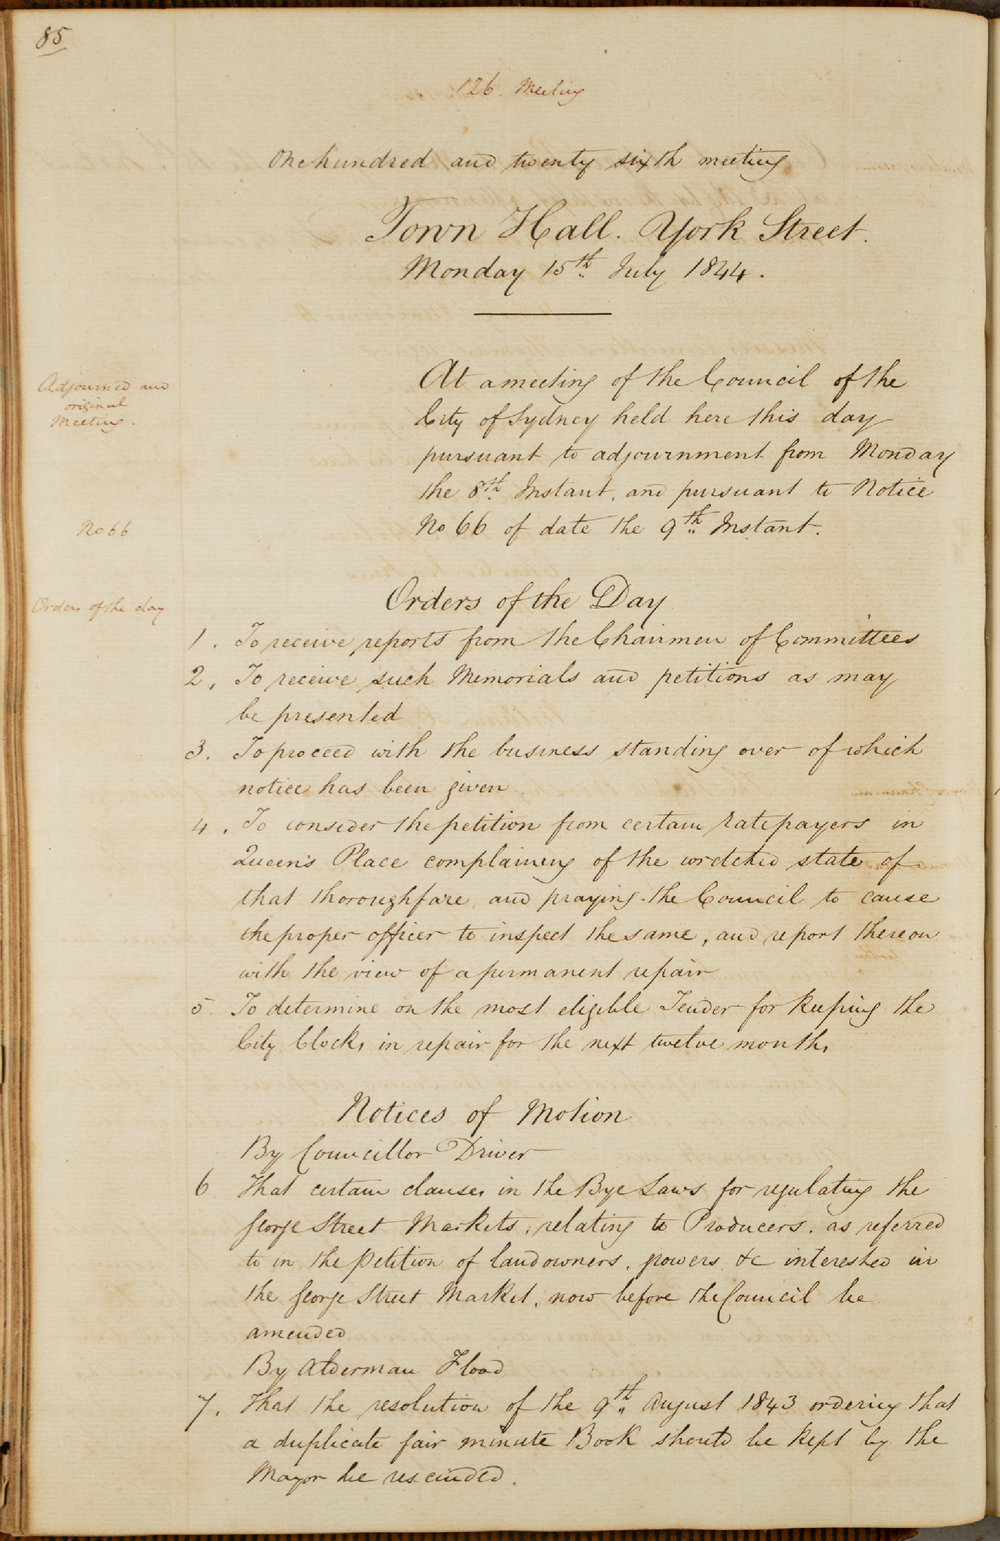 85
126. Meeting
One hundred and twenty sixth meeting
Town Hall. York Street.
Monday 15th July 1844.
Adjourned and
original
Meeting.
At a meeting of the Council of the
City of Sydney held here this day
pursuant to adjournment from Monday
the 8th Instant, and pursuant to Notice
No 66
No 66 of date the 9th Instant.
Orders of the day
Orders of the Day
1. To receive reports from the Chairmen of Committees
2. To receive such Memorials and petitions as may
be presented
3. To proceed with the business standing over of which
notice has been given.
4. To consider the petition from certain ratepayers in
Queen's Place complaining of the wretched state of
that thoroughfare and praying the Council to cause
the proper officer to inspect the same, and report thereon
with the view of a permanent repair
5 To determine on the most eligible Tender for keeping the
City Clocks in repair for the next twelve months
Notices of Motion
By Councillor Driver
6 That certain clauses in the Bye Laws for regulating the
George Street Markets, relating to Producers, as referred
to in the Petition of landowners, growers &c interested in
the George Street Market, now before the Council be
amended
By Alderman Flood
7. That the resolution of the 9th August 1843 ordering that
a duplicate fair minute Book should be kept by the
Mayor be rescinded.